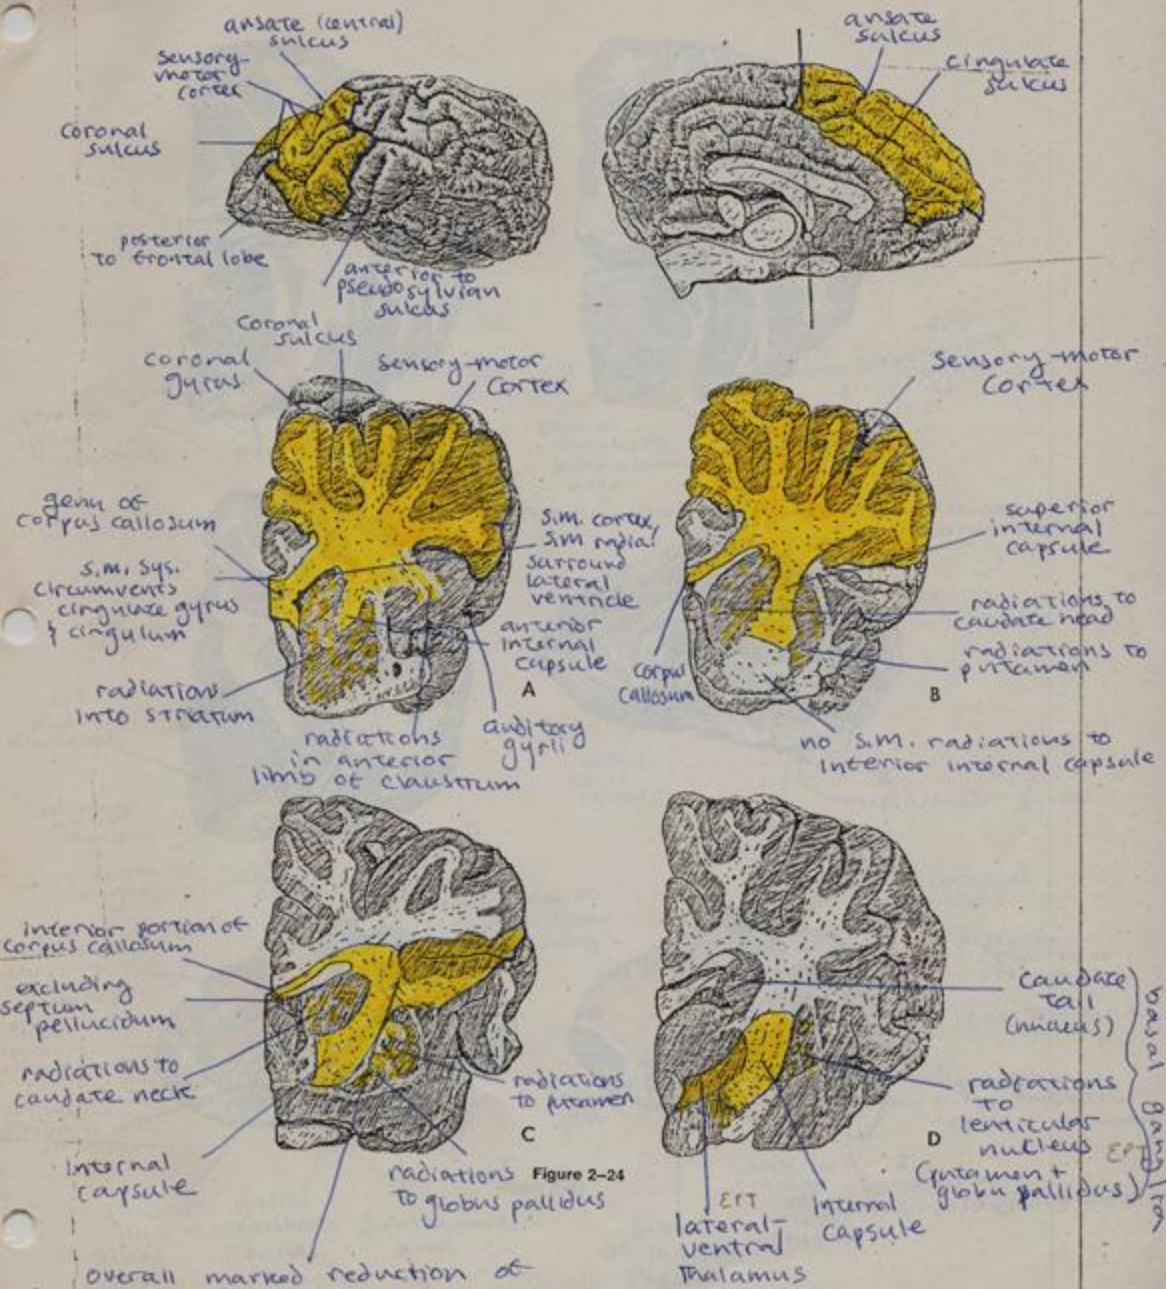 ansate (central)
sulcus
sensory-
motor
cortex
coronal
sulcus
posterior
to frontal lobe
anterior to
pseudosylvian
sulcus
ansate
sulcus
cingulate
sulcus
coronal
sulcus
coronal
gyrus
sensory-motor
cortex
genu of
corpus callosum
s.m. sys.
circumvents
cingulate gyrus
& cingulum
radiation
into striatum
radiations
in anterior
limb of claustrum
S.M. cortex,
S.M radia.
surround
lateral
ventricle
anterior
internal
capsule
A
auditory
gyrii
sensory-motor
cortex
superior
internal
capsule
radiations to
caudate head
radiations to
putamen
corpus
callosum
B
no S.M. radiations to
interior internal capsule
interior portion of
corpus callosum
excluding
septum
pellucidum
radiations to
caudate neck
internal
capsule
radiations
to putamen
C
radiations
to globus pallidus
Figure 2–24
overall marked reduction of
caudate
tail
(nucleus)
radiations
to
lenticular
nucleus
(putamen +
globu pallidus)
basal ganglia
EPT
D
EPT
lateral-
ventral
thalamus
internal
capsule